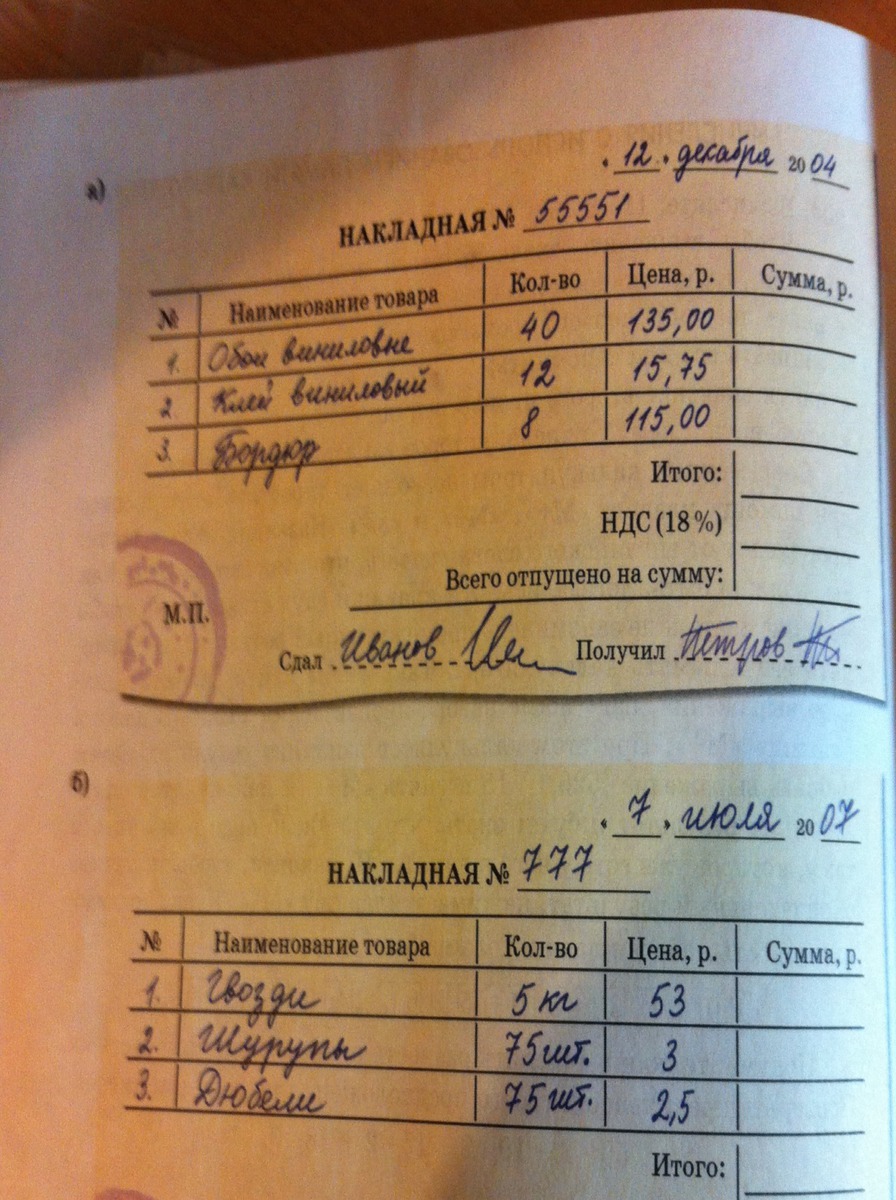 а)
« 12 » декабря 20 04
НАКЛАДНАЯ № 55551
№ Наименование товара Кол-во Цена, р. Сумма, р.
1. Обои виниловые 40 135,00
2. Клей виниловый 12 15,75
3. Бордюр 8 115,00
Итого:
НДС (18 %)
Всего отпущено на сумму:
М.П.
Сдал Иванов Получил Петров
б)
« 7 » июля 20 07
НАКЛАДНАЯ № 777
№ Наименование товара Кол-во Цена, р. Сумма, р.
1. Гвозди 5 кг 53
2. Шурупы 75 шт. 3
3. Дюбели 75 шт. 2,5
Итого: